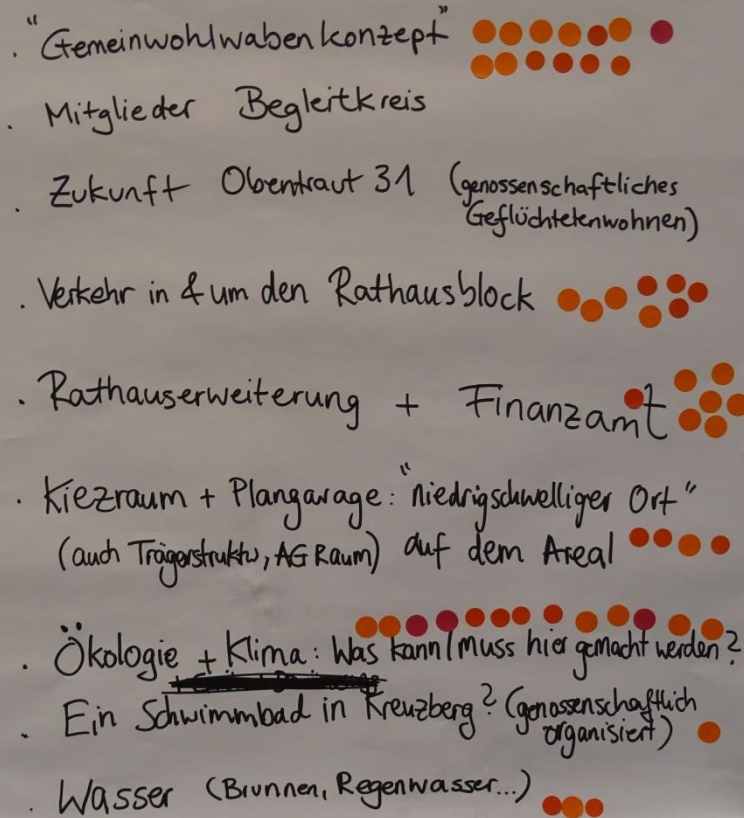 . "Gemeinwohlwabenkonzept"
. Mitglieder Begleitkreis
. Zukunft Obentraut 31 (genossenschaftliches
Geflüchtetenwohnen)
. Verkehr in & um den Rathausblock
. Rathauserweiterung + Finanzamt
. Kiezraum + Plangarage: "niedrigschwelliger Ort"
(auch Trägerstruktur, AG Raum) auf dem Areal
. Ökologie + Klima: Was kann/muss hier gemacht werden?
. Ein Schwimmbad in Kreuzberg? (genossenschaftlich
organisiert)
. Wasser (Brunnen, Regenwasser...)